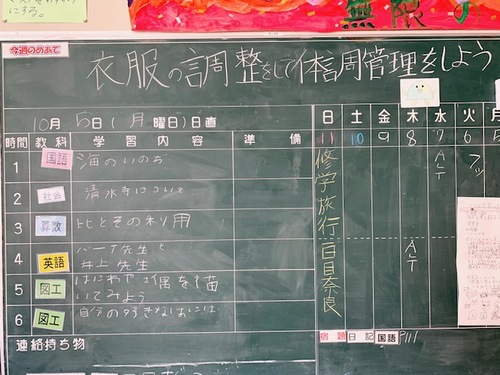 にする。
無限の
今週のめあて
衣服の調整をして体調管理をしよう
10月5日(月曜日)日直
時間 教科 学習内容 準備
1 国語 海のいのち
2 社会 清水寺について
3 算数 比とその利用
4 英語 バーナ先生と
井上先生
5 図工 はにわや土偶を描
いてみよう
6 図工 自分の好きなはには
連絡持ち物
日 土 金 木 水 火 月
11 10 9 8 7 6 5
修学旅行一日目奈良
ALT
ALT
宿題 日記 国語 P111